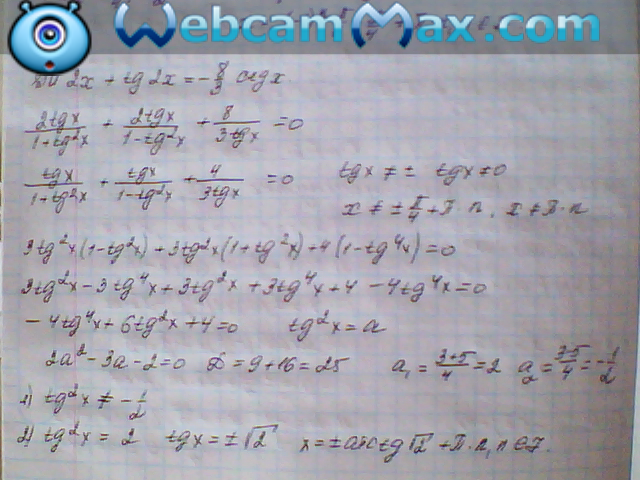 WebcamMax.com
sin 2x + tg 2x = -8/3 ctg x.
2tgx/(1+tg²x) + 2tgx/(1-tg²x) + 8/(3tgx) = 0
tgx/(1+tg²x) + tgx/(1-tg²x) + 4/(3tgx) = 0 tgx ≠ ± tgx ≠ 0
x ≠ ± π/4 + π·n, x ≠ π·n
3tg²x(1-tg²x) + 3tg²x(1+tg²x) + 4(1-tg⁴x) = 0
3tg²x - 3tg⁴x + 3tg²x + 3tg⁴x + 4 - 4tg⁴x = 0
- 4tg⁴x + 6tg²x + 4 = 0 tg²x = a
2a² - 3a - 2 = 0 D = 9 + 16 = 25 a₁ = (3+5)/4 = 2 a₂ = (3-5)/4 = -1/2
1) tg²x ≠ -1/2
2) tg²x = 2 tgx = ±√2 x = ± arctg√2 + π·n, n ∈ Z.